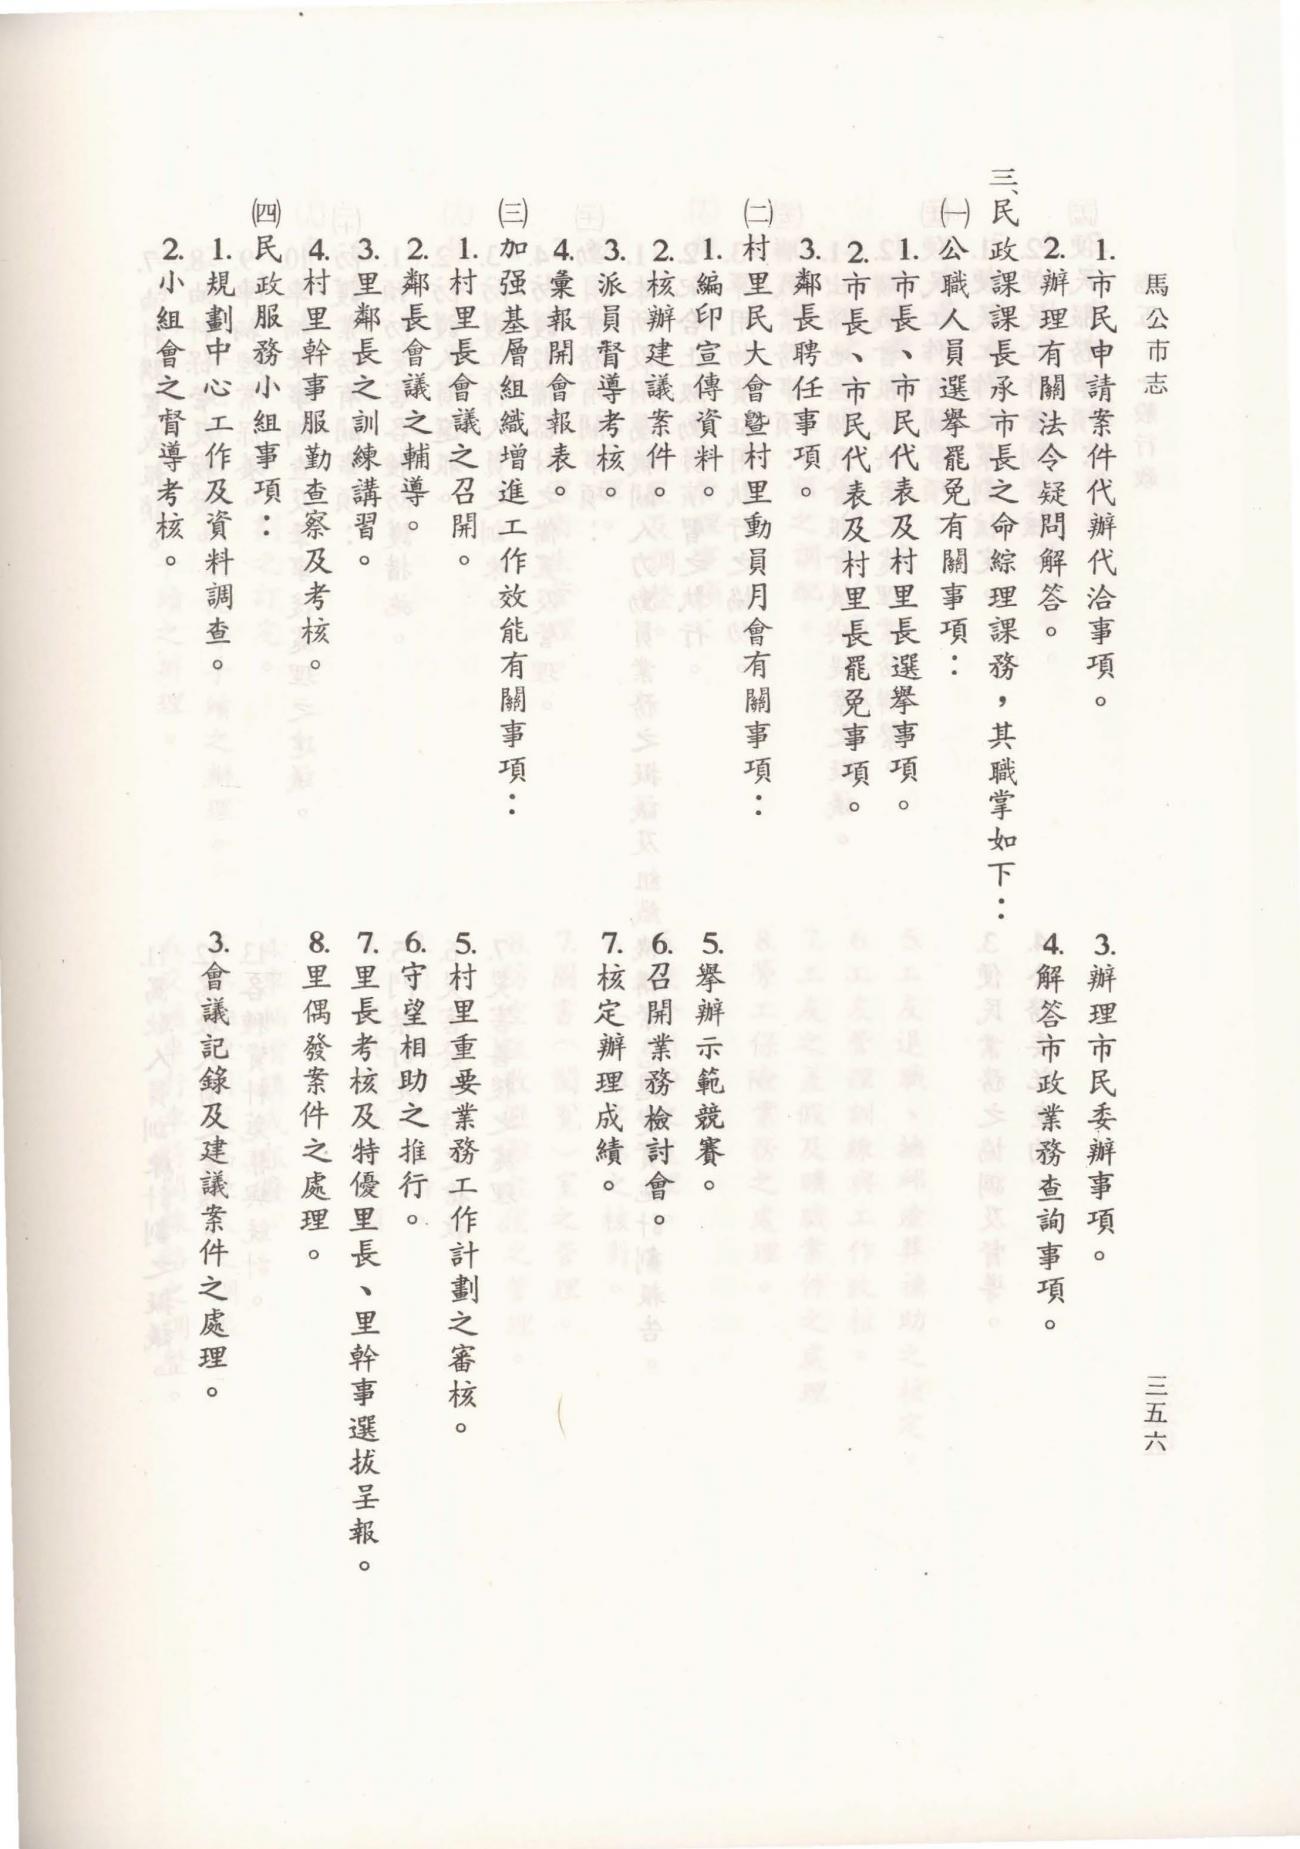 馬公市志
三五六
1.市民申請案件代辦代洽事項。
2.辦理有關法令疑問解答。
3.辦理市民委辦事項。
4.解答市政業務查詢事項。
三、民政課課長承市長之命綜理課務，其職掌如下：
㈠公職人員選舉罷免有關事項：
1.市長、市民代表及村里長選舉事項。
2.市長、市民代表及村里長罷免事項。
3.鄰長聘任事項。
㈡村里民大會暨村里動員月會有關事項：
1.編印宣傳資料。
2.核辦建議案件。
3.派員督導考核。
4.彙報開會報表。
5.舉辦示範競賽。
6.召開業務檢討會。
7.核定辦理成績。
㈢加强基層組織增進工作效能有關事項：
1.村里長會議之召開。
2.鄰長會議之輔導。
3.里鄰長之訓練講習。
4.村里幹事服勤查察及考核。
5.村里重要業務工作計劃之審核。
6.守望相助之推行。
7.里長考核及特優里長、里幹事選拔呈報。
8.里偶發案件之處理。
㈣民政服務小組事項：
1.規劃中心工作及資料調查。
2.小組會之督導考核。
3.會議記錄及建議案件之處理。